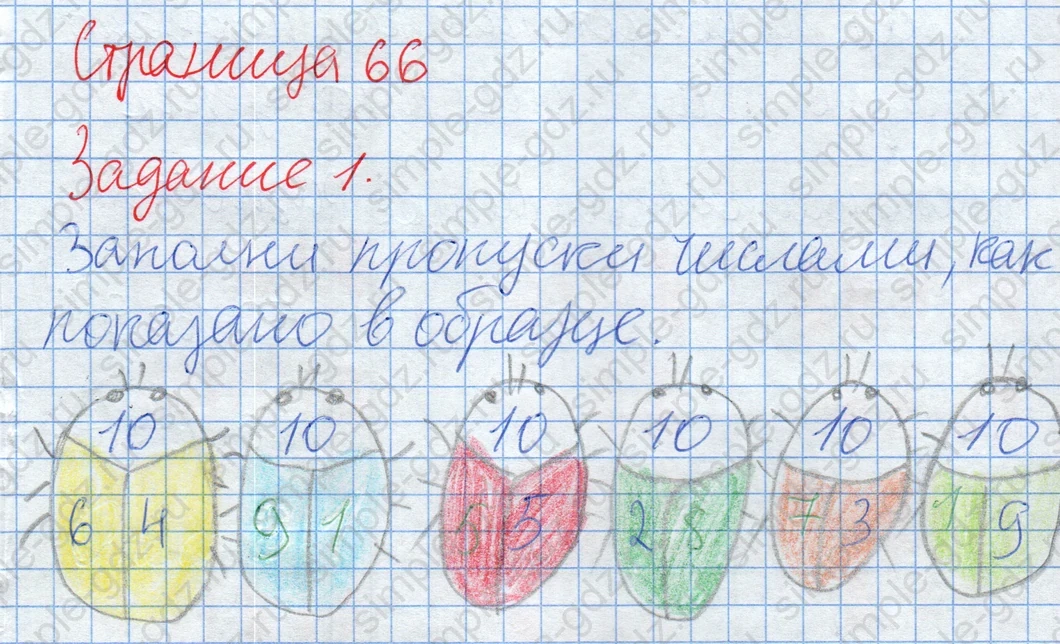 Страница 66
Задание 1.
Заполни пропуски числами, как
показано в образце.
10 10 10 10 10 10
6 4 9 1 5 5 2 8 7 3 1 9
simple-gdz.ru